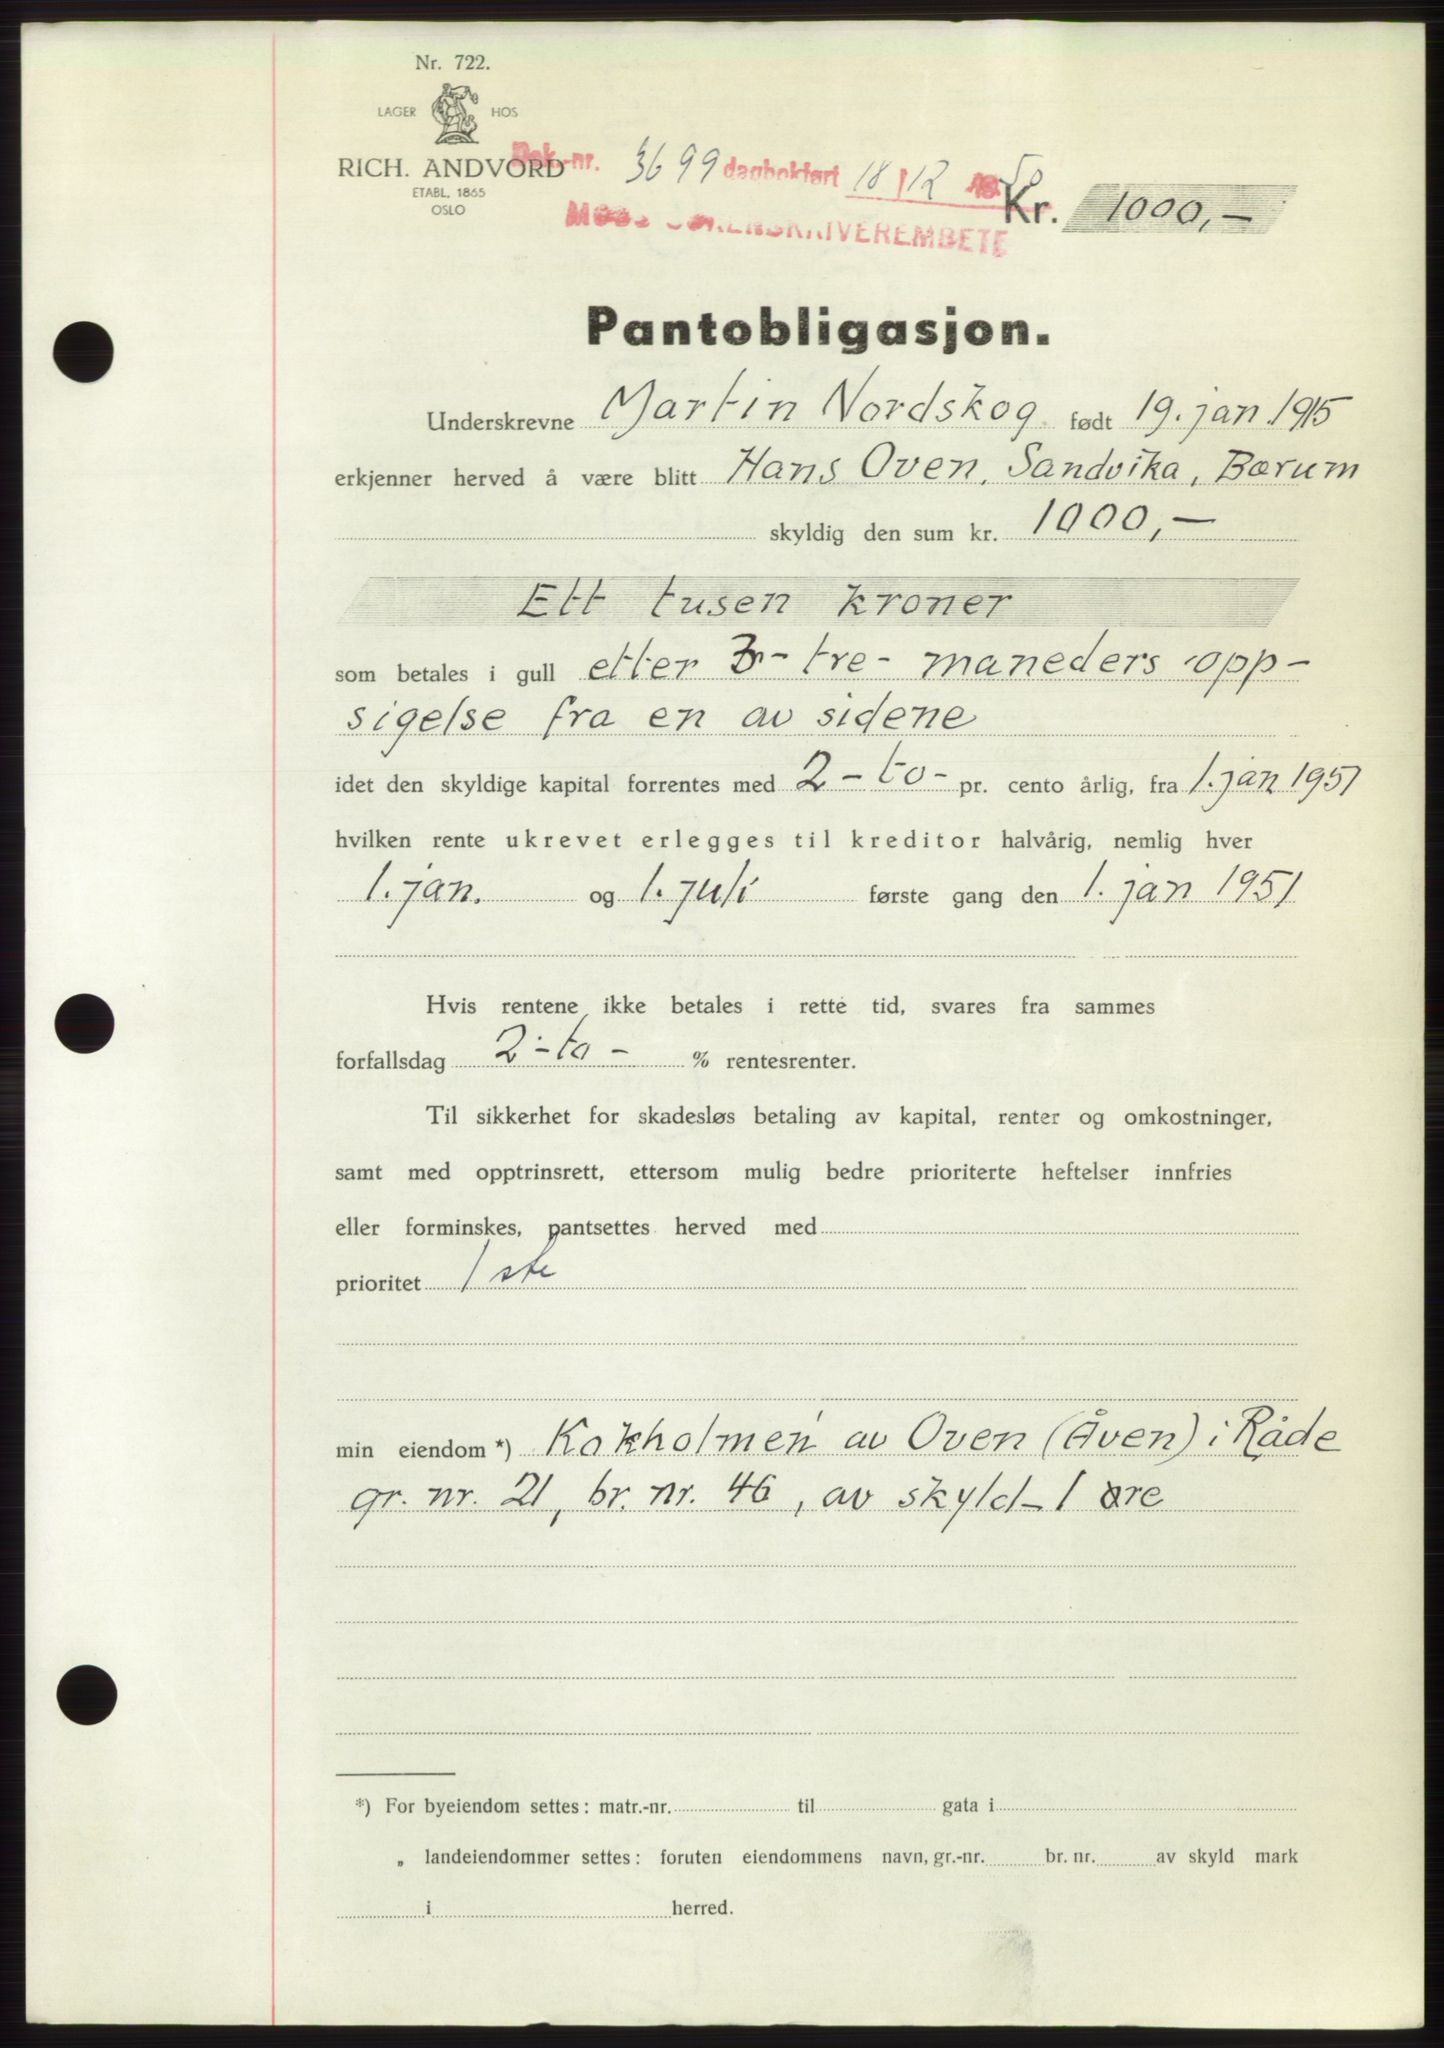 Nr. 722.
LAGER HOS
RICH. ANDVORD
ETABL. 1865
OSLO
Dok.-nr. 3699 dagbokført 18/12 1950
MOSS SORENSKRIVEREMBETE
Kr. 1000,—
Pantobligasjon.
Underskrevne Martin Nordskog født 19. jan. 1915
erkjenner herved å være blitt Hans Oven, Sandvika, Bærum
skyldig den sum kr. 1000,—
Ett tusen kroner
som betales i gull etter 3 - tre - maneders opp-
sigelse fra en av sidene
idet den skyldige kapital forrentes med 2 - to - pr. cento årlig, fra 1. jan 1951
hvilken rente ukrevet erlegges til kreditor halvårig, nemlig hver
1. jan. og 1. juli første gang den 1. jan 1951
Hvis rentene ikke betales i rette tid, svares fra sammes
forfallsdag 2 - to - % rentesrenter.
Til sikkerhet for skadesløs betaling av kapital, renter og omkostninger,
samt med opptrinsrett, ettersom mulig bedre prioriterte heftelser innfries
eller forminskes, pantsettes herved med
prioritet 1 ste
min eiendom *) Kokholmen av Oven (Åven) i Råde
gr. nr. 21, br. nr. 46, av skyld - 1 øre
*) For byeiendom settes: matr.-nr. til gata i
„ landeiendommer settes: foruten eiendommens navn, gr.-nr. br. nr. av skyld mark
i herred.